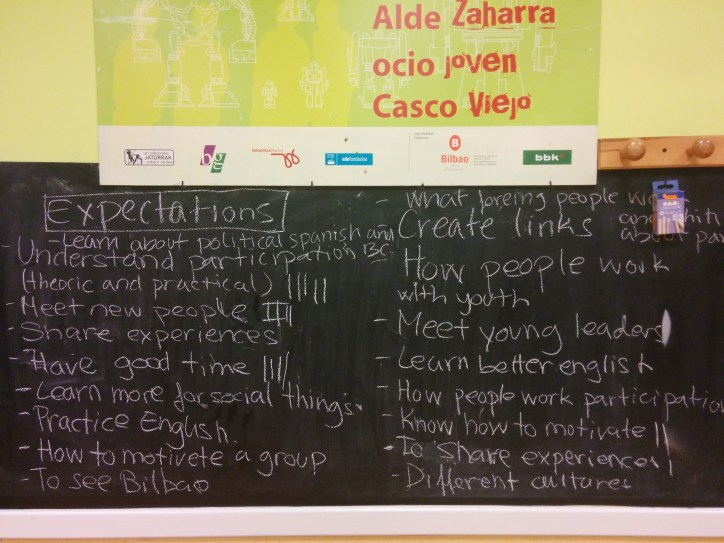 Alde Zaharra
ocio joven
Casco Viejo
JATORRAK
bg
Bilbao
bbk
Expectations
- Learn about political spanish and BC
- Understand participation
(theoric and practical) |||||
- Meet new people ||||
- Share experiences
- Have good time ||||
- Learn more for social things
- Practice English.
- How to motivete a group
- To see Bilbao
- What foreing people
Create links
about
How people work
with youth
- Meet young leaders
- Learn better english
- How people work participation
- Know how to motivate ||
- To share experiences |
- Different cultures